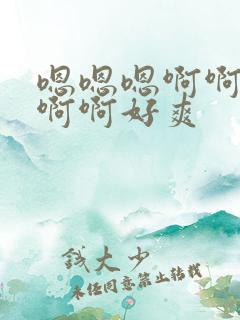 嗯嗯嗯啊啊
啊啊好爽
钱大少
未经同意禁止转载